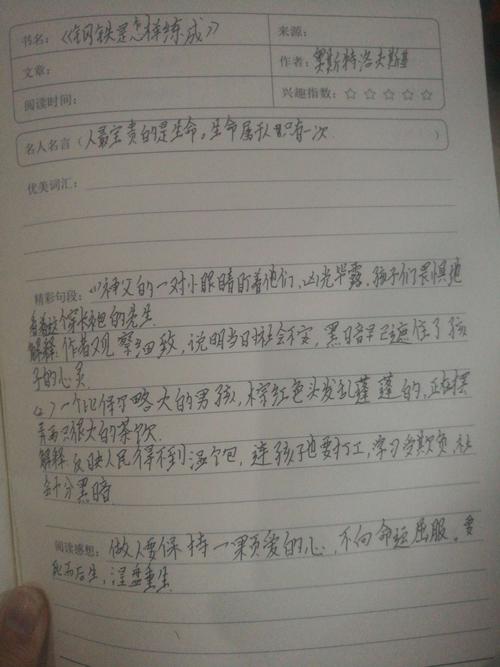 书名：《钢铁是怎样练成》
来源：
文章：
作者：奥斯特洛夫斯基
阅读时间：
兴趣指数：☆☆☆☆☆
名人名言（人最宝贵的是生命。生命属于人只有一次）
优美词汇：
精彩句段：(1)神父的一对小眼睛盯着他们，凶光毕露。孩子们畏惧地
看着这个穿长袍的先生
解释：作者观察细致，说明当日社会不安，黑暗早已遮住了孩
子的心灵
(2)一个比保尔略大的男孩，棕红色头发乱蓬蓬的，正在摆
弄两只很大的茶炊
解释：反映人民得不到温饱，连孩子也要打工，
会十分黑暗
阅读感想：做人要保持一颗爱的心，不向命运屈服。要
死而后生，涅盘重生